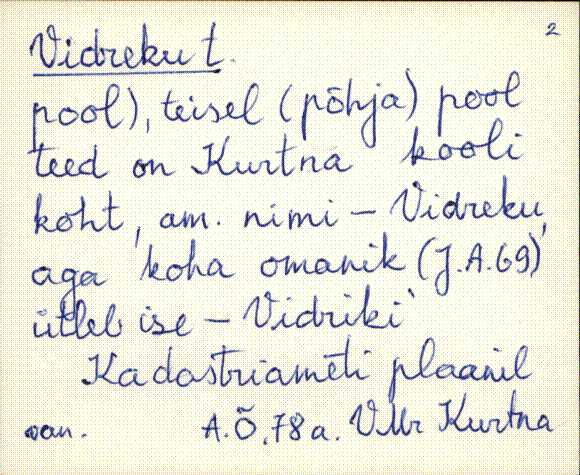 2
Vidreku t.
pool), teisel (põhja) pool
teed on Kurtna kooli
koht, am. nimi – Vidreku,
aga koha omanik (J.A.69)
ütleb ise – Vidriki`
Kadastriameti plaanil
van. A.Õ, 78 a. VMr Kurtna